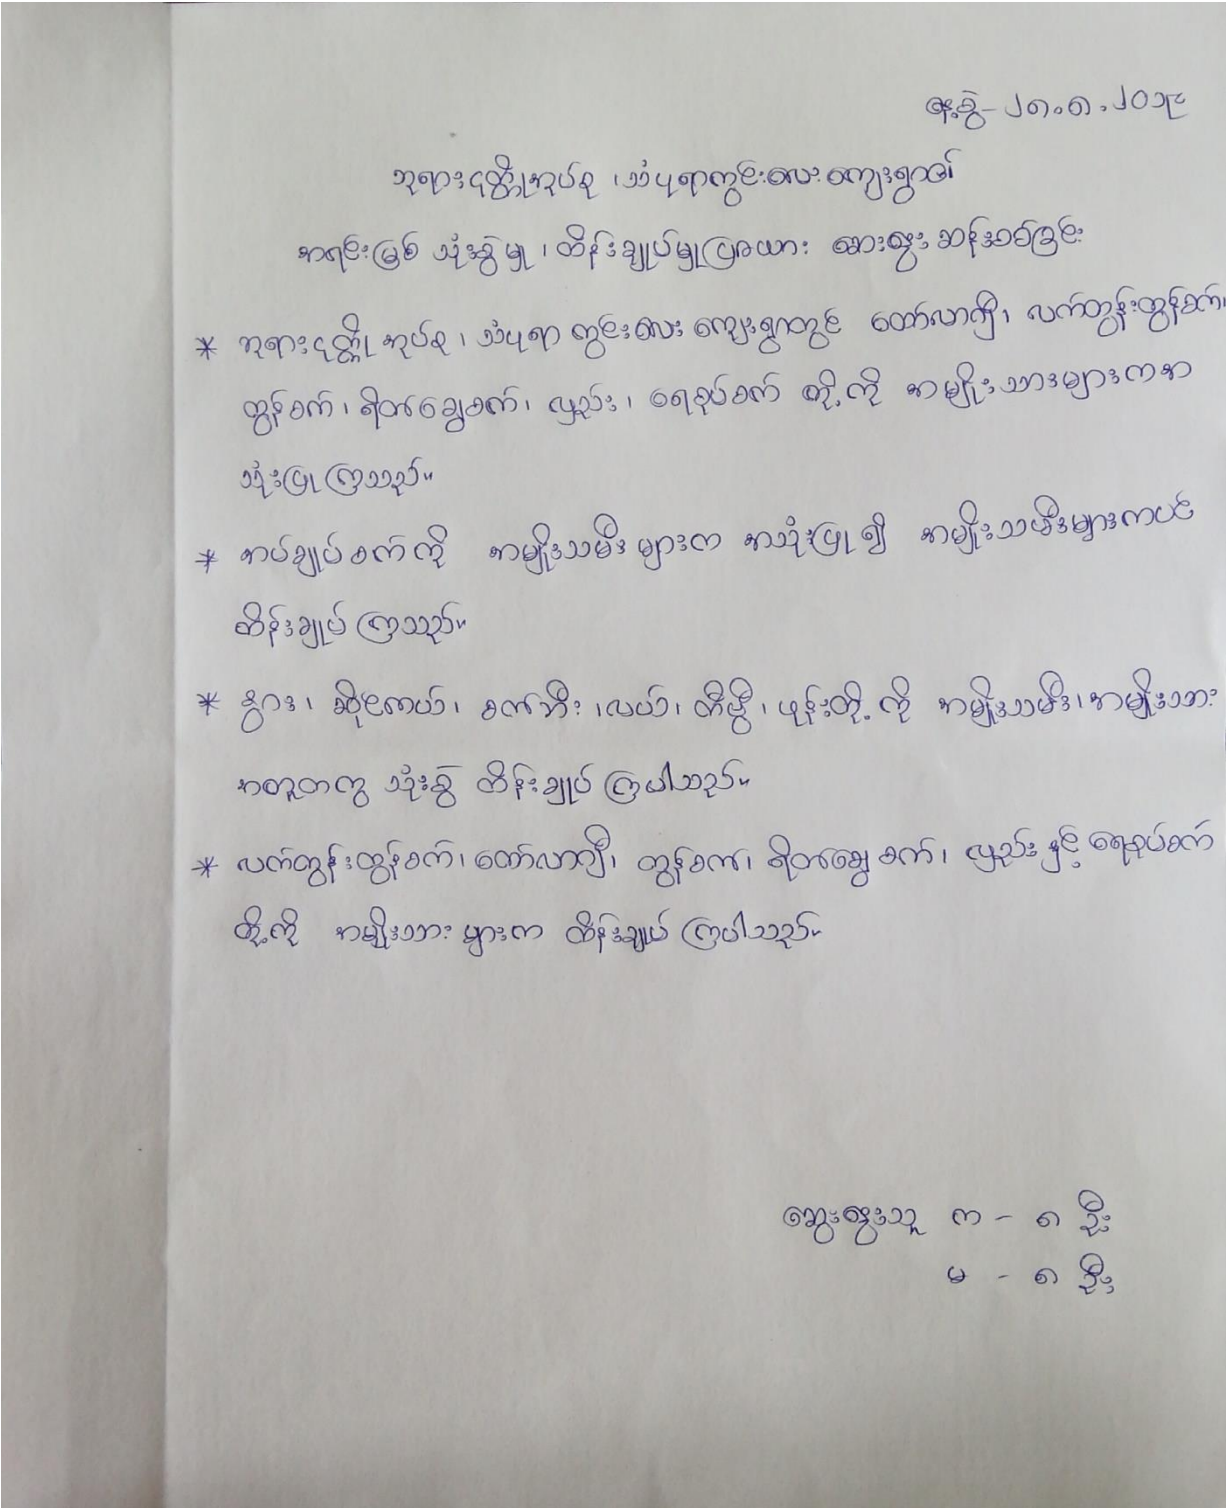 နေ့စွဲ - ၂၈.၈.၂၀၁၉
ဘုရားငုတ္တိုအုပ်စု ၊ သံပုရာကွင်းလေးကျေးရွာ၏
အရင်းမြစ် သုံးစွဲမှု ၊ ထိန်းချုပ်မှုပြဇယား ဆွေးနွေး ဆန်းစစ်ခြင်း
* ဘုရားငုတ္တို အုပ်စု ၊ သံပုရာ ကွင်းလေး ကျေးရွာတွင် ထော်လာဂျီ ၊ လက်တွန်းထွန်စက်၊
ထွန်စက် ၊ ရိတ်ချွေစက် ၊ လှည်း ၊ ရေစုပ်စက် တို့ကို အမျိုးသားများကအ
သုံးပြု ကြသည်။
* အပ်ချုပ်စက်ကို အမျိုးသမီး များက အသုံးပြု၍ အမျိုးသမီးများကပင်
ထိန်းချုပ် ကြသည်။
* နွား ၊ ဆိုင်ကယ် ၊ စက်ဘီး ၊ လယ် ၊ တီဗွီ ၊ ဖုန်းတို့ ကို အမျိုးသမီး ၊ အမျိုးသား
အတူတကွ သုံးစွဲ ထိန်းချုပ် ကြပါသည်။
* လက်တွန်းထွန်စက် ၊ ထော်လာဂျီ ၊ ထွန်စက် ၊ ရိတ်ချွေ စက် ၊ လှည်း နှင့် ရေစုပ်စက်
တို့ကို အမျိုးသား များက ထိန်းချုပ် ကြပါသည်။
ဆွေးနွေးသူ က - ၈ ဦး
မ - ၈ ဦး